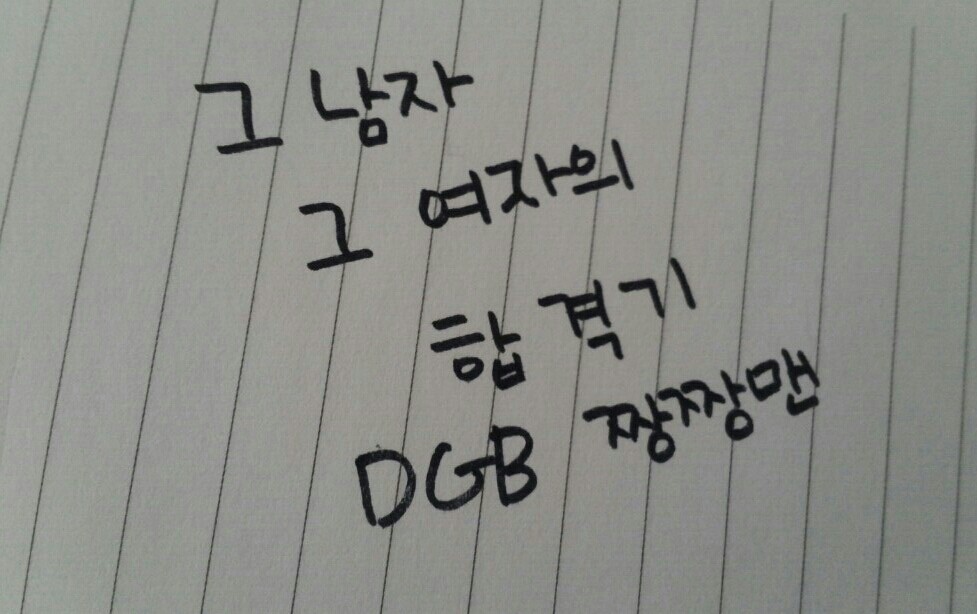 그 남자
그 여자의
합격기
DGB 짱짱맨